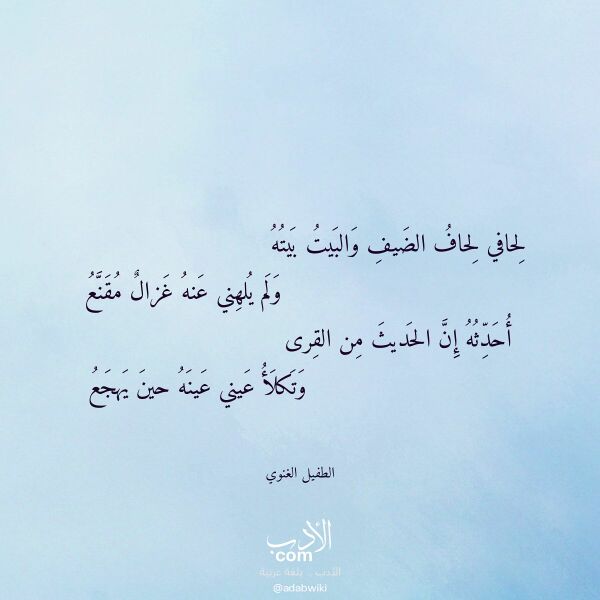 لِحافي لِحافُ الضَيفِ وَالبَيتُ بَيتُهُ
وَلَم يُلهِني عَنهُ غَزالٌ مُقَنَّعُ
أُحَدِّثُهُ إِنَّ الحَديثَ مِن القِرى
وَتَكلَأُ عَيني عَينَهُ حينَ يَهجَعُ
الطفيل الغنوي
الأدب
com
الأدب .. بلغة عربية
@adabwiki